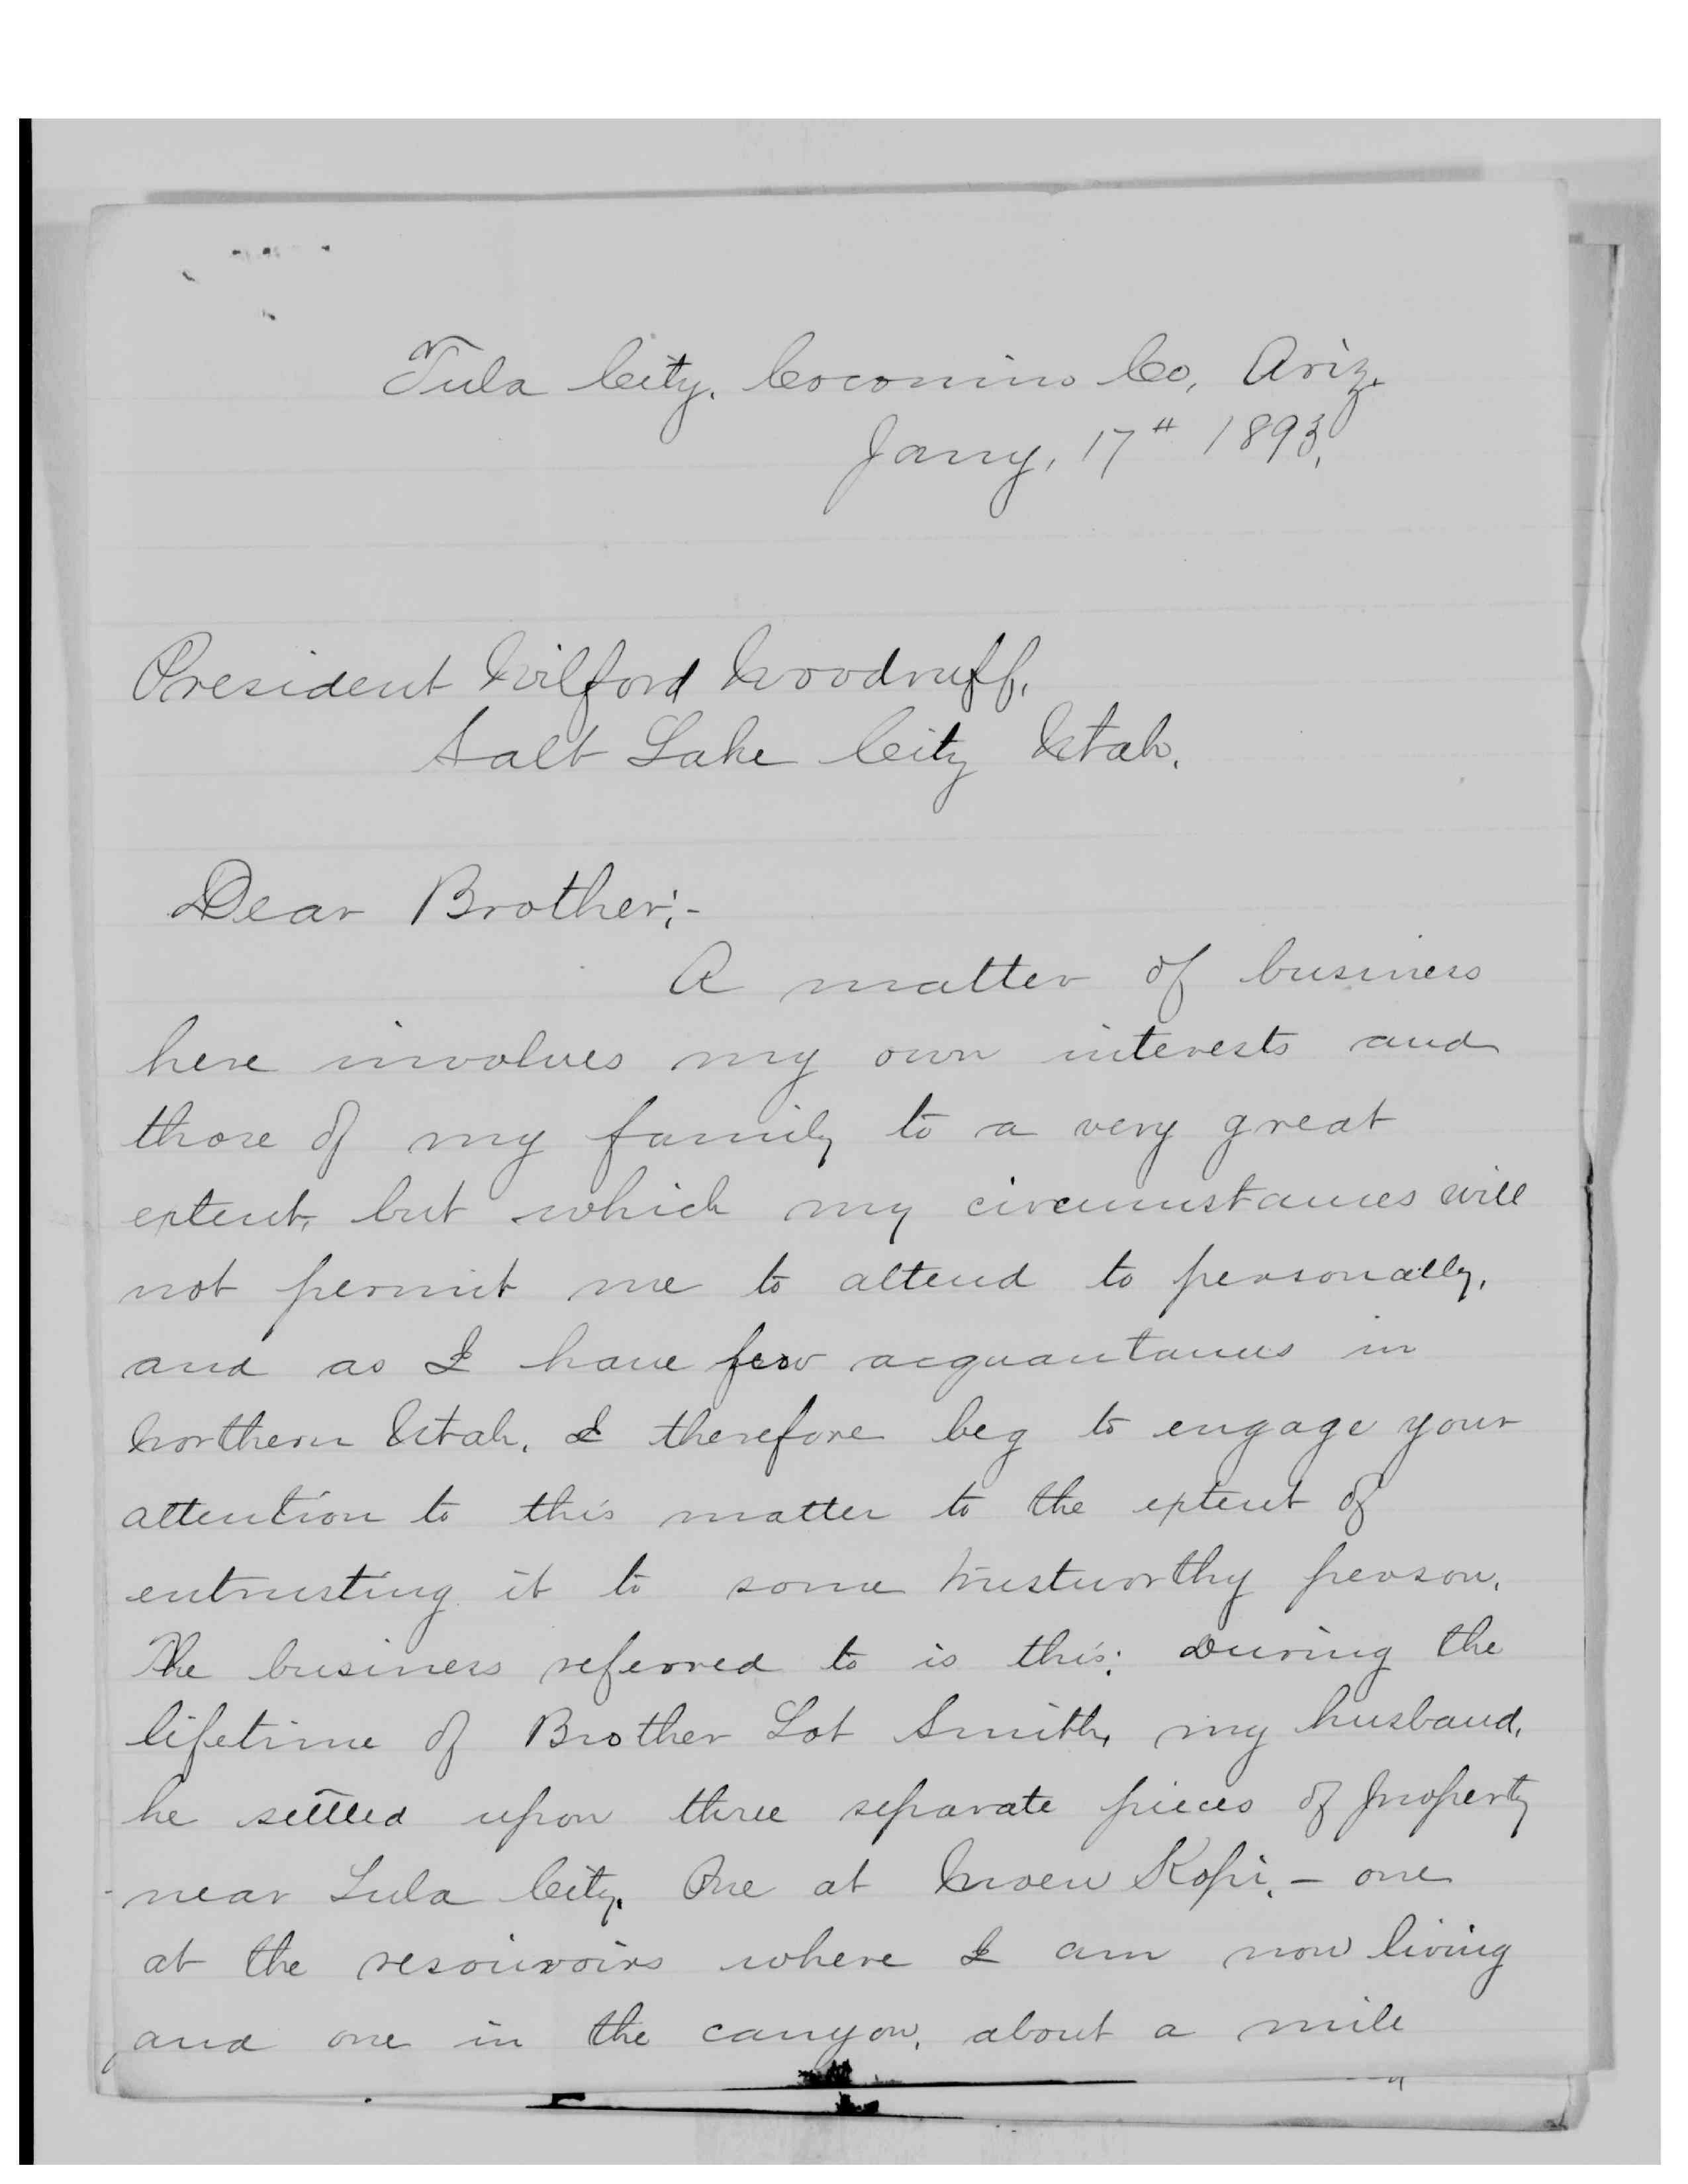 Tula City. Coconino Co, Ariz.
Jany, 17th 1893.
President Wilford Woodruff,
Salt Lake City Utah.
Dear Brother;-
A matter of business
here involves my own interests and
those of my family to a very great
extent, but which my circumstances will
not permit me to attend to personally,
and as I have few acquantances in
Northern Utah, I therefore beg to engage your
attention to this matter to the extent of
entrusting it to some trustworthy person.
The business referred to is this: During the
lifetime of Brother Lot Smith, my husband,
he settled upon three separate pieces of property
near Tula City. One at Moen Kopi. - one
at the resoirvoirs where I am now living
and one in the canyon, about a mile